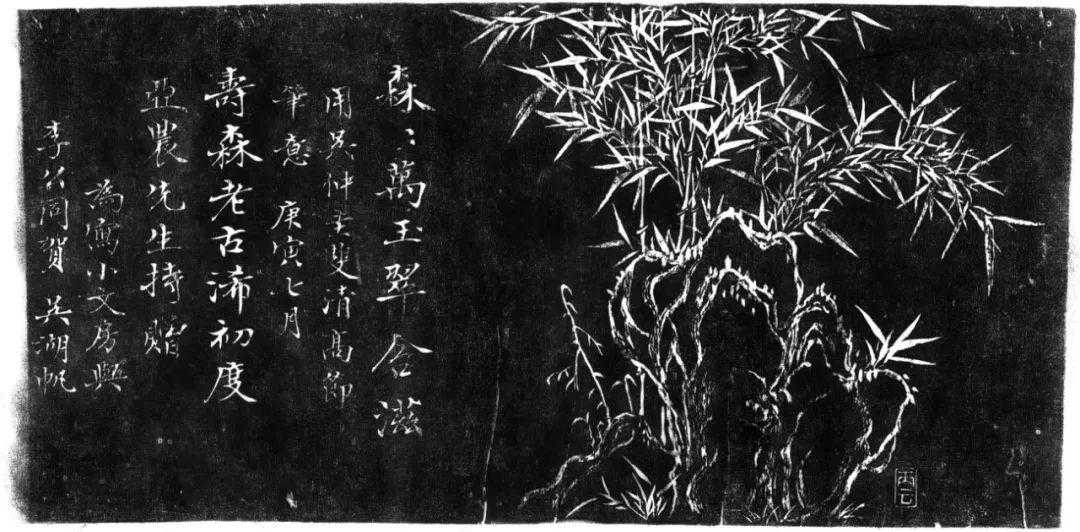 森〻萬玉翠含滋
用吳仲圭雙清高節
筆意 庚寅七月
壽森老古稀初度
亞農先生持貽
為寫小文房與
李公同賀 吳湖帆